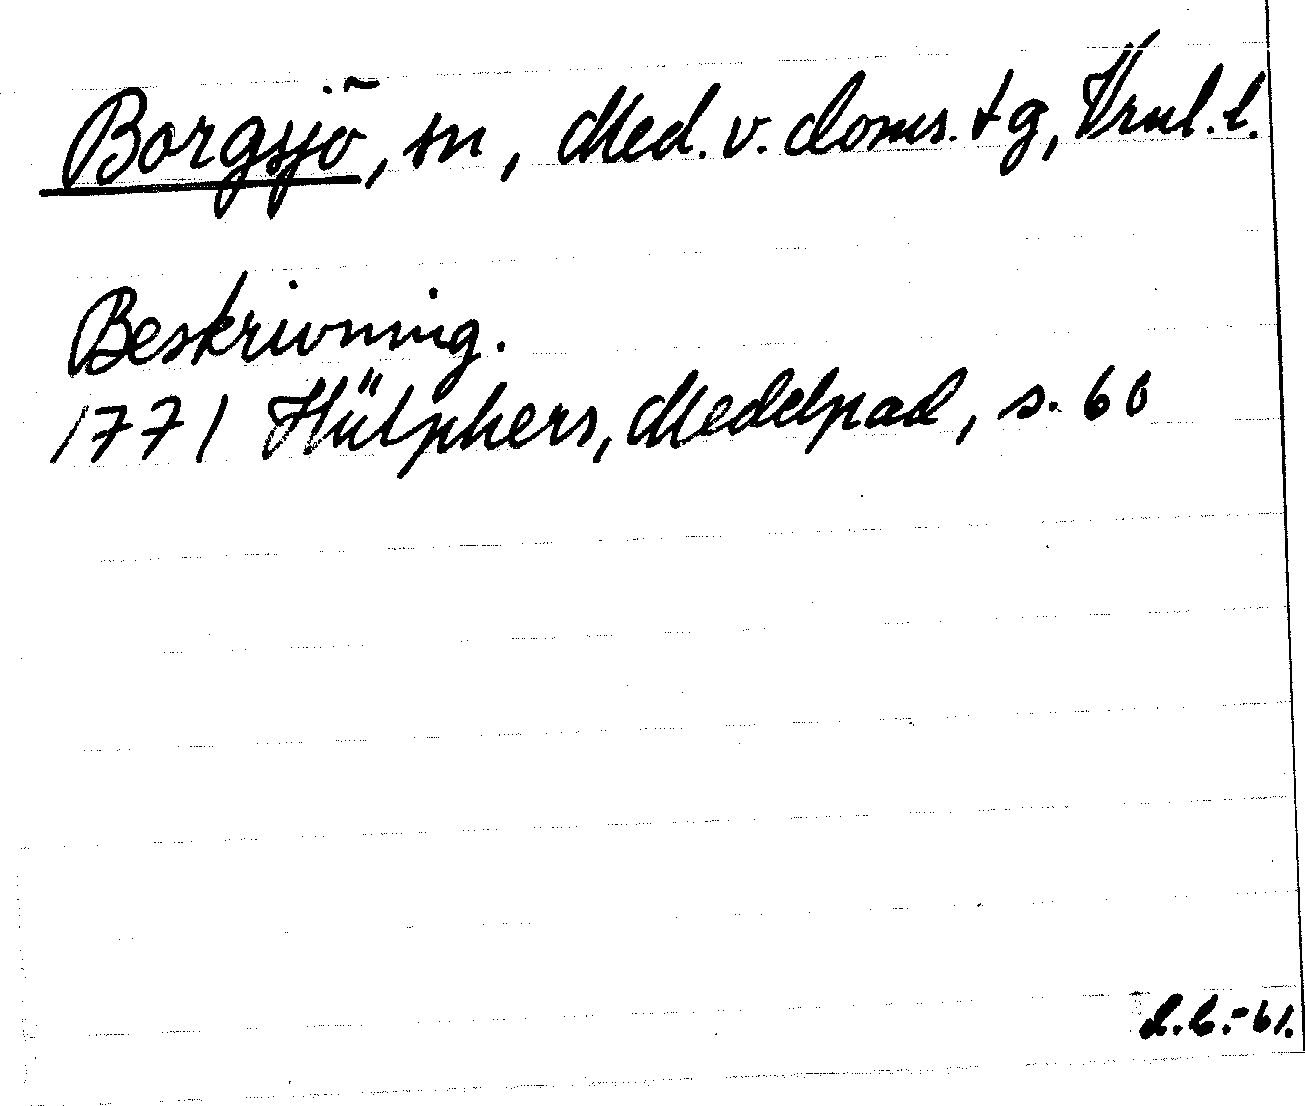 Borgsjö, sn, Med. v. doms. tg, Vrnl. l.
Beskrivning.
1771 Hülphers, Medelpad, s. 66
L.C.-61.